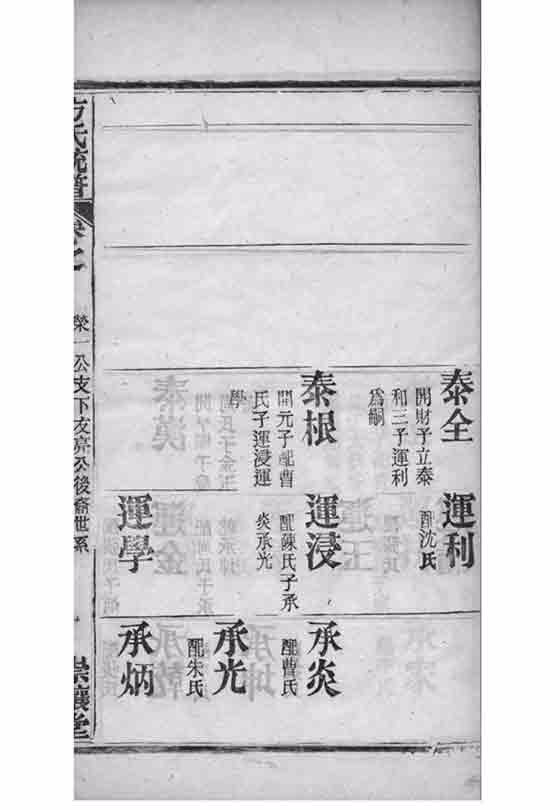 泰全
開財子立泰
和三子運利
爲嗣
泰根
開元子配曹
氏子運浸運
學
運利
配沈氏
運浸
配陳氏子承
炎承光
運學
承炎
配曹氏
承光
配朱氏
承炳
方氏統譜
卷之
榮一公支下友亮公後裔世系